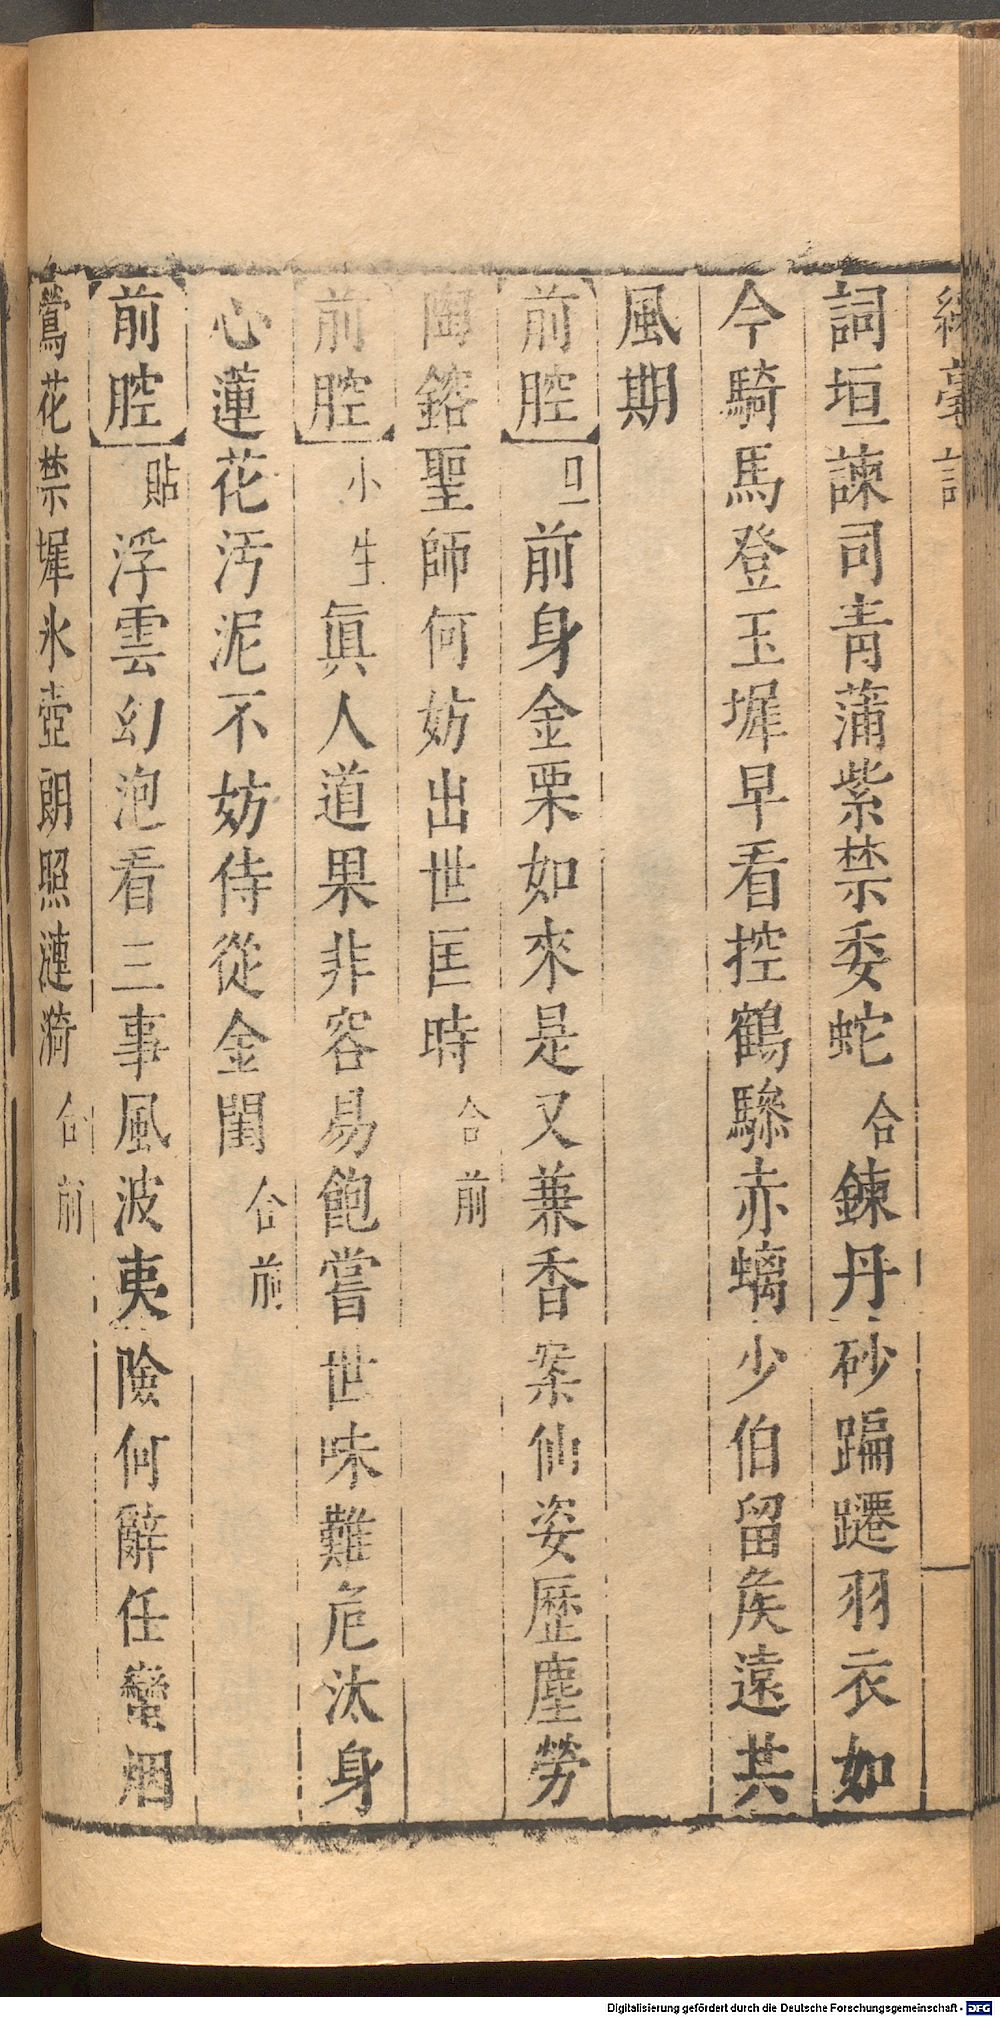 綵毫記
詞垣諫司青蒲紫禁委蛇合鍊丹砂蹁躚羽衣如
今騎馬登玉墀早看控鶴驂赤螭少伯留矦遠共
風期
【前腔】旦前身金栗如來是又兼香案仙姿歷塵勞
陶鎔聖師何妨出世匡時合前
【前腔】小生眞人道果非容易飽嘗世味難危汰身
心蓮花汚泥不妨侍從金閨合前
【前腔】貼浮雲幻泡看三事風波夷險何辭任蠻烟
鶯花禁墀氷壺朗照漣漪合前
Digitalisierung gefördert durch die Deutsche Forschungsgemeinschaft - DFG